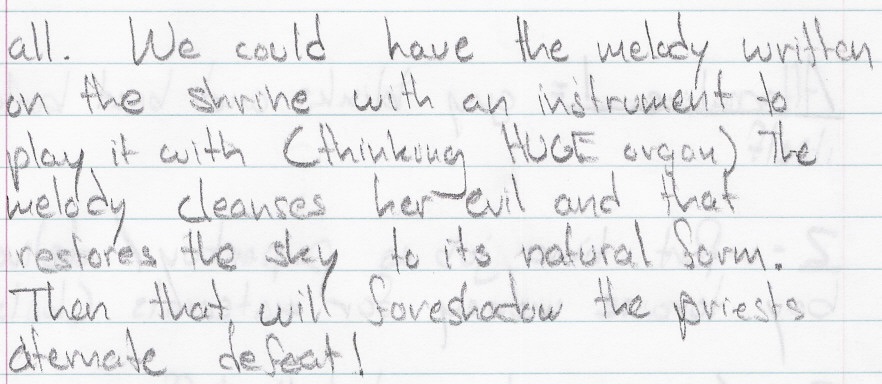 all. We could have the melody written
on the shrine with an instrument to
play it with (thinking HUGE organ) The
melody cleanses her evil and that
restores the sky to its natural form.
Then that will foreshadow the priests
aternate defeat!